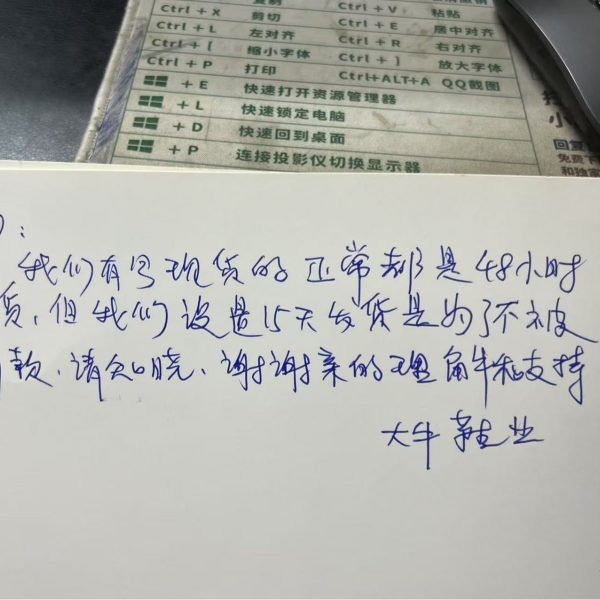 复制
Ctrl + X 剪切 Ctrl + V 粘贴
Ctrl + L 左对齐 Ctrl + E 居中对齐
Ctrl + [ 缩小字体 Ctrl + R 右对齐
Ctrl + P 打印 Ctrl + ] 放大字体
+ E 快速打开资源管理器 Ctrl+ALT+A QQ截图
+ L 快速锁定电脑
+ D 快速回到桌面
+ P 连接投影仪切换显示器
回复
免费下
和独家
:
我们有号现货的正常都是48小时
货,但我们设置15天发货是为了不被
款、请知晓、谢谢亲的理解和支持
大牛鞋业